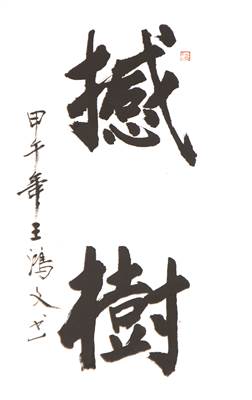 撼樹
甲午年王鴻文书